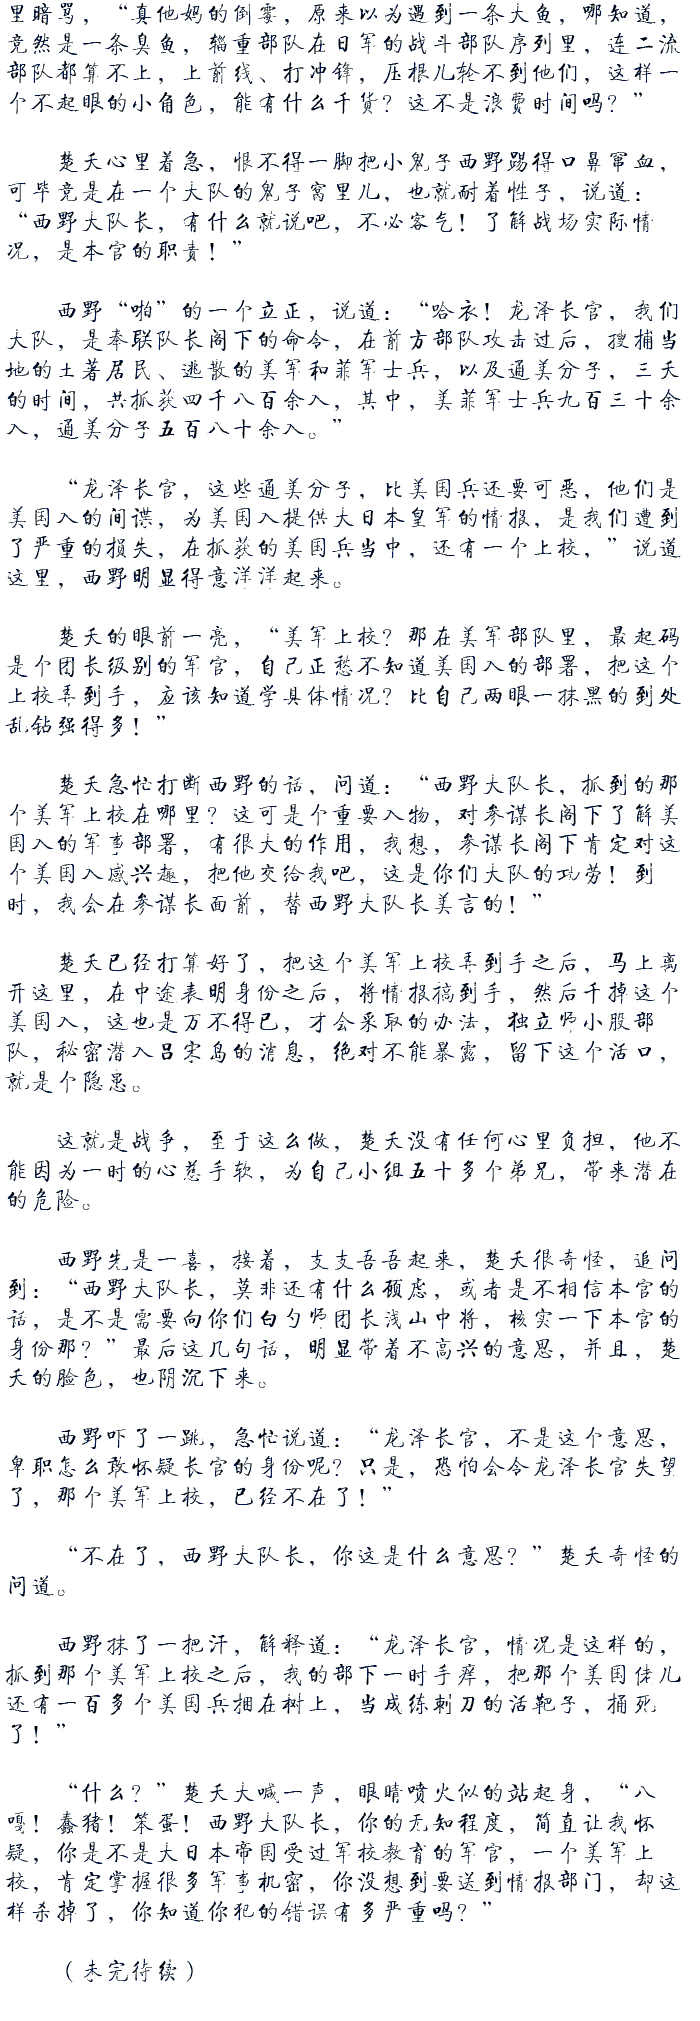 里暗骂，“真他妈的倒霉，原来以为遇到一条大鱼，哪知道，
竟然是一条臭鱼，辎重部队在日军的战斗部队序列里，连二流
部队都算不上，上前线、打冲锋，压根儿轮不到他们，这样一
个不起眼的小角色，能有什么干货？这不是浪费时间吗？”
楚天心里着急，恨不得一脚把小鬼子西野踢得口鼻窜血，
可毕竟是在一个大队的鬼子窝里儿，也就耐着性子，说道：
“西野大队长，有什么就说吧，不必客气！了解战场实际情
况，是本官的职责！”
西野“啪”的一个立正，说道：“哈衣！龙泽长官，我们
大队，是奉联队长阁下的命令，在前方部队攻击过后，搜捕当
地的土著居民、逃散的美军和菲军士兵，以及通美分子，三天
的时间，共抓获四千八百余人，其中，美菲军士兵九百三十余
人，通美分子五百八十余人。”
“龙泽长官，这些通美分子，比美国兵还要可恶，他们是
美国人的间谍，为美国人提供大日本皇军的情报，是我们遭到
了严重的损失，在抓获的美国兵当中，还有一个上校，”说道
这里，西野明显得意洋洋起来。
楚天的眼前一亮，“美军上校？那在美军部队里，最起码
是个团长级别的军官，自己正愁不知道美国人的部署，把这个
上校弄到手，应该知道学具体情况？比自己两眼一抹黑的到处
乱钻强得多！”
楚天急忙打断西野的话，问道：“西野大队长，抓到的那
个美军上校在哪里？这可是个重要人物，对参谋长阁下了解美
国人的军事部署，有很大的作用，我想，参谋长阁下肯定对这
个美国人感兴趣，把他交给我吧，这是你们大队的功劳！到
时，我会在参谋长面前，替西野大队长美言的！”
楚天已经打算好了，把这个美军上校弄到手之后，马上离
开这里，在中途表明身份之后，将情报搞到手，然后干掉这个
美国人，这也是万不得已，才会采取的办法，独立师小股部
队，秘密潜入吕宋岛的消息，绝对不能暴露，留下这个活口，
就是个隐患。
这就是战争，至于这么做，楚天没有任何心里负担，他不
能因为一时的心慈手软，为自己小组五十多个弟兄，带来潜在
的危险。
西野先是一喜，接着，支支吾吾起来，楚天很奇怪，追问
到：“西野大队长，莫非还有什么顾虑，或者是不相信本官的
话，是不是需要向你们白勺师团长浅山中将，核实一下本官的
身份那？”最后这几句话，明显带着不高兴的意思，并且，楚
天的脸色，也阴沉下来。
西野吓了一跳，急忙说道：“龙泽长官，不是这个意思，
卑职怎么敢怀疑长官的身份呢？只是，恐怕会令龙泽长官失望
了，那个美军上校，已经不在了！”
“不在了，西野大队长，你这是什么意思？”楚天奇怪的
问道。
西野抹了一把汗，解释道：“龙泽长官，情况是这样的，
抓到那个美军上校之后，我的部下一时手痒，把那个美国佬儿
还有一百多个美国兵捆在树上，当成练刺刀的活靶子，捅死
了！”
“什么？”楚天大喊一声，眼睛喷火似的站起身，“八
嘎！蠢猪！笨蛋！西野大队长，你的无知程度，简直让我怀
疑，你是不是大日本帝国受过军校教育的军官，一个美军上
校，肯定掌握很多军事机密，你没想到要送到情报部门，却这
样杀掉了，你知道你犯的错误有多严重吗？”
（未完待续）